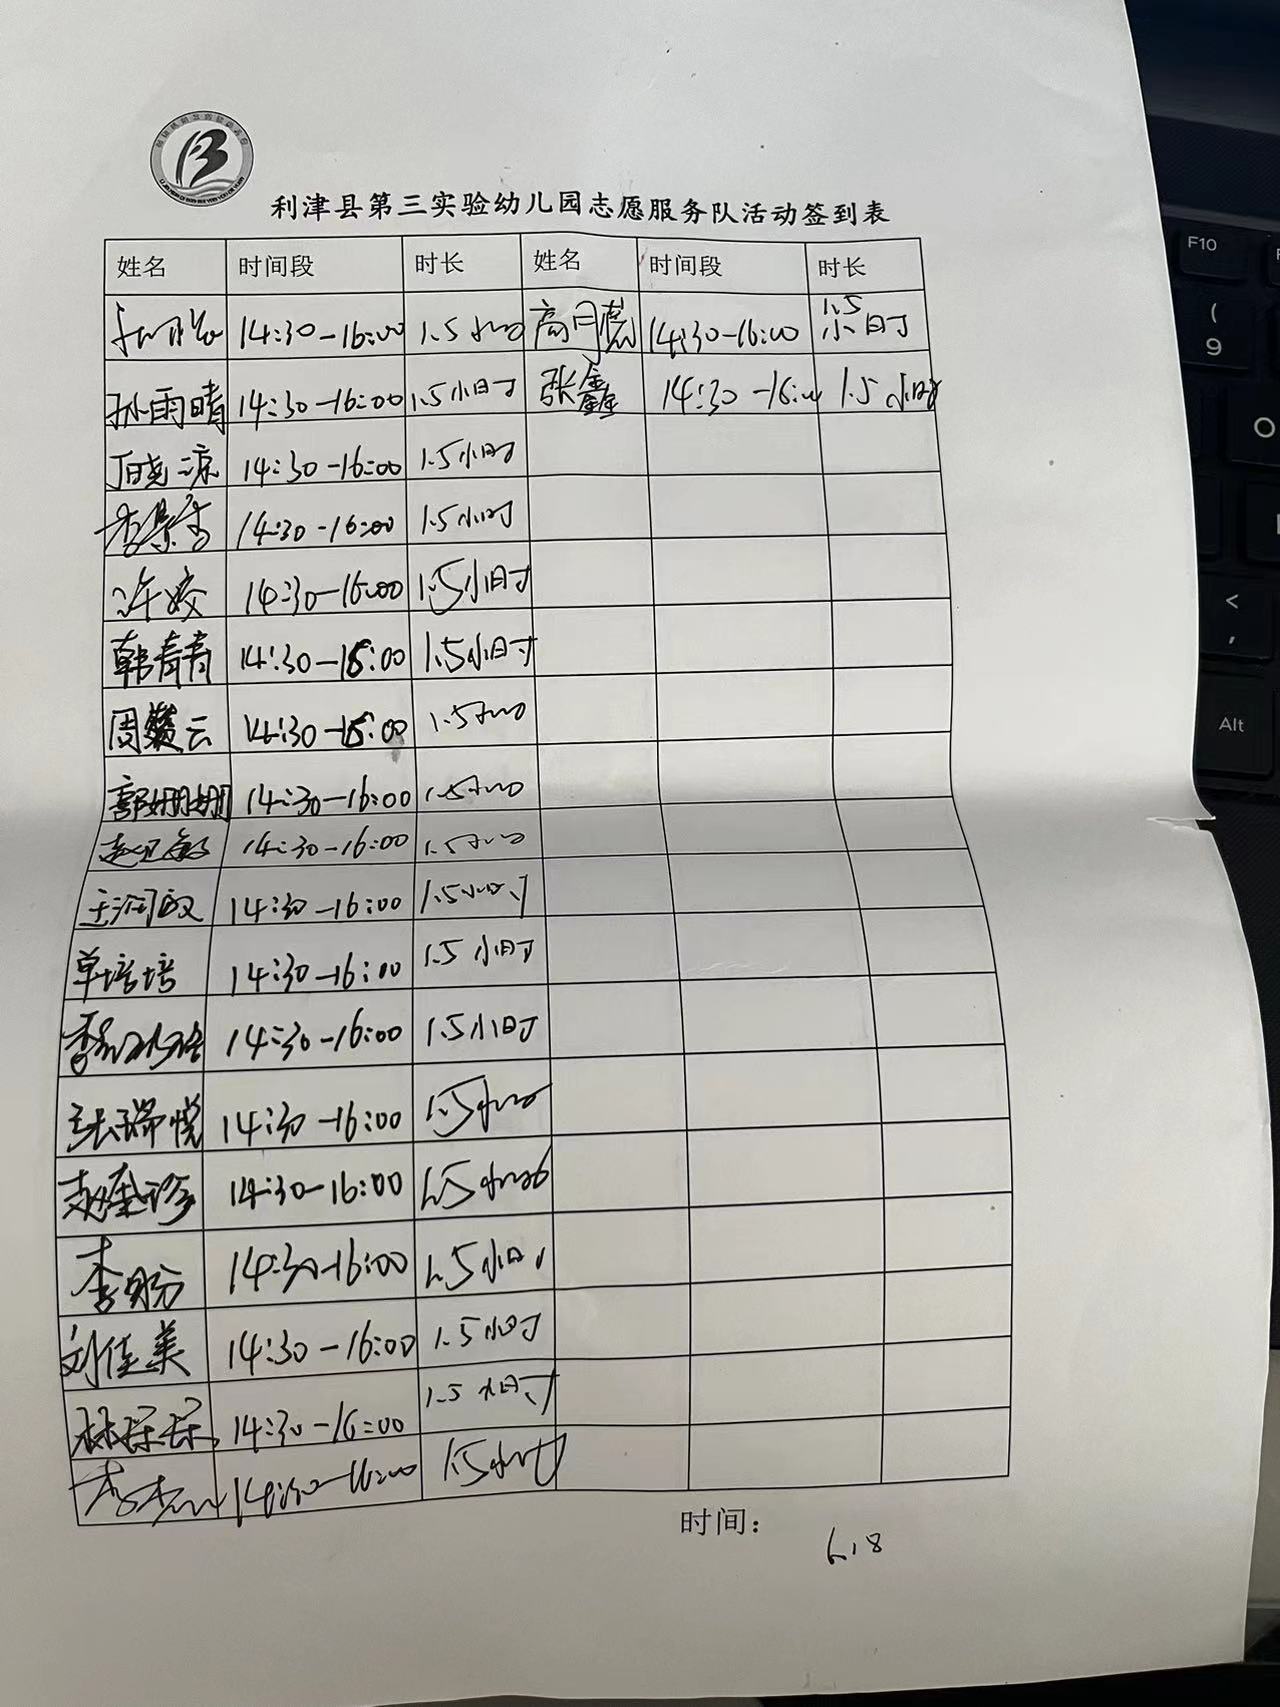 利津县第三实验幼儿园志愿服务队活动签到表
姓名 时间段 时长 姓名 时间段 时长
14:30-16:00 1.5小时 高月 14:30-16:00 1.5小时
孙雨晴 14:30-16:00 1.5小时 张鑫 14:30-16:00 1.5小时
14:30-16:00 1.5小时
李景香 14:30-16:00 1.5小时
许姣 14:30-16:00 1.5小时
韩青青 14:30-16:00 1.5小时
周 云 14:30-16:00 1.5小时
郭姗姗 14:30-16:00 1.5小时
赵 敏 14:30-16:00 1.5小时
王 14:30-16:00 1.5小时
单培培 14:30-16:00 1.5小时
14:30-16:00 1.5小时
张瑞悦 14:30-16:00 1.5小时
赵 珍 14:30-16:00 1.5小时
李盼 14:30-16:00 1.5小时
刘佳美 14:30-16:00 1.5小时
林琛琛 14:30-16:00 1.5小时
李 14:30-16:00 1.5小时
时间： 6.18
F10
(
9
O
<
,
Alt